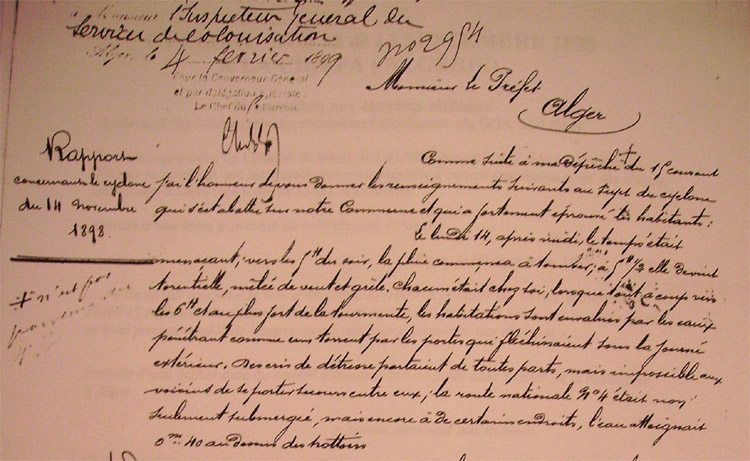 Monsieur l'Inspecteur Général du
Service de Colonisation
Alger, le 4 février 1899
no 2954
Pour le Gouverneur Général
et par délégation spéciale
Le Chef du Bureau
Monsieur le Préfet
Alger
Rapport
concernant le cyclone
du 14 novembre
1898.
Comme suite à ma Dépêche + du 15 courant
j'ai l'honneur de vous donner les renseignements suivants au sujet du cyclone
qui s'est abattu sur notre Commune et qui a fortement éprouvé les habitants :
Le lundi 14, après midi, le temps était
menaçant ; vers les 5h du soir, la pluie commença à tomber ; à 5h 1/2 elle devint
torentielle, mêlée de vent et grêle. Chacun était chez soi, lorsque tout à coup vers
les 6h et au plus fort de la tourmente, les habitations sont envahies par les eaux
pénétrant comme un torrent par les portes qui fléchissaient sous la poussée
extérieur. Des cris de détresse partaient de toutes parts, mais impossible aux
voisins de se porter secours entre eux ; la route nationale No 4 était non
seulement submergée, mais encore à de certains endroits, l'eau atteignait
0m 40 au dessus des trottoirs
+ n'est pas